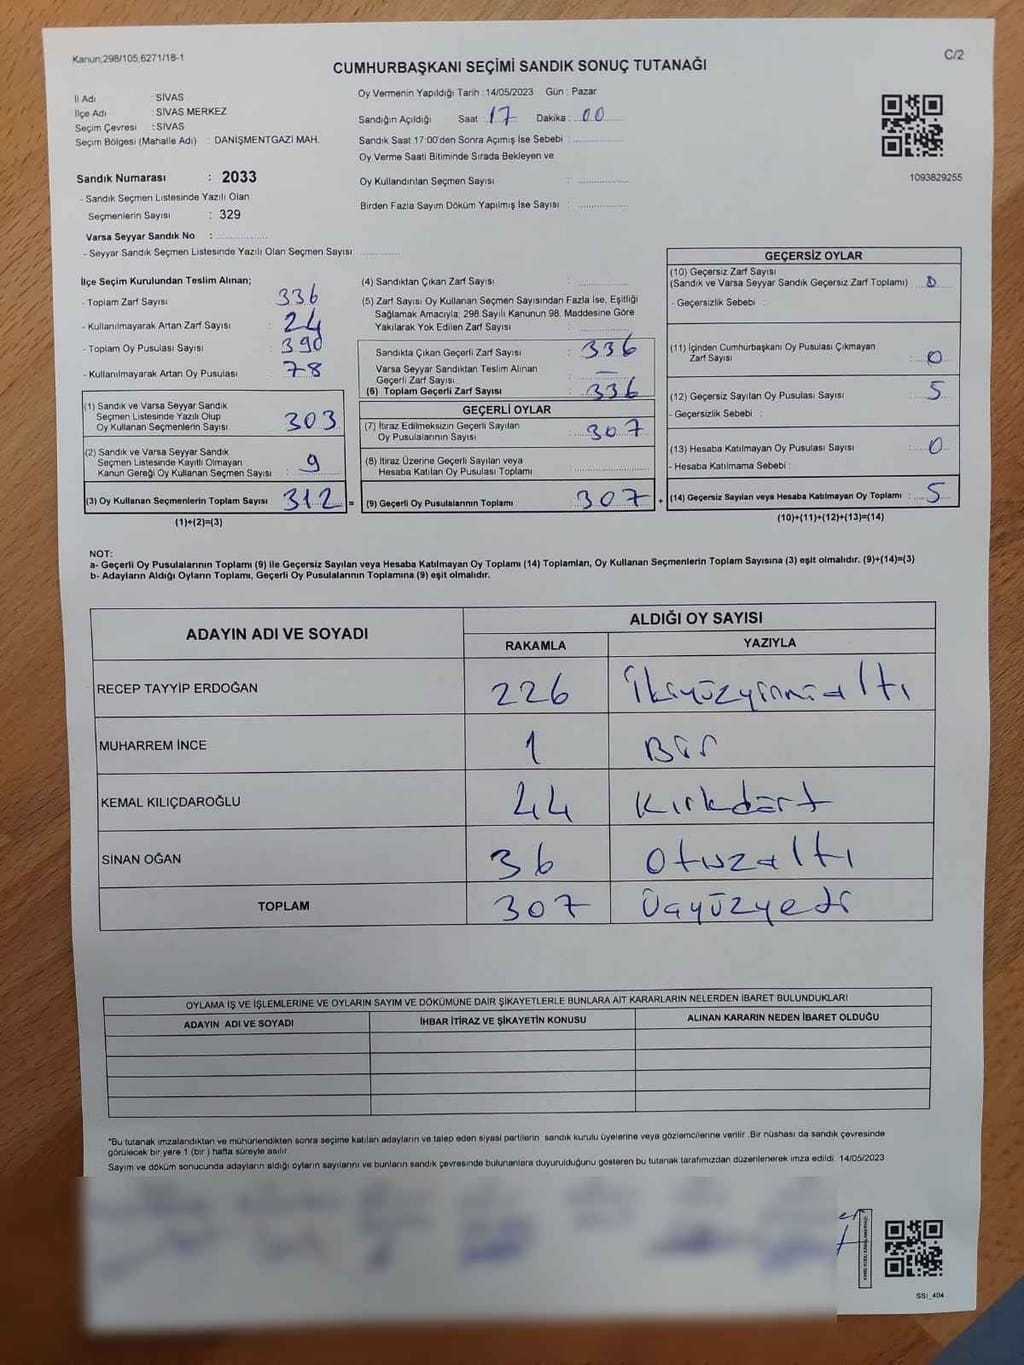 Kanun;298/105,6271/18-1
C/2
CUMHURBAŞKANI SEÇİMİ SANDIK SONUÇ TUTANAĞI
İl Adı : SİVAS
İlçe Adı : SİVAS MERKEZ
Seçim Çevresi : SİVAS
Seçim Bölgesi (Mahalle Adı) : DANİŞMENTGAZİ MAH.
Sandık Numarası : 2033
- Sandık Seçmen Listesinde Yazılı Olan
Seçmenlerin Sayısı : 329
Varsa Seyyar Sandık No :
- Seyyar Sandık Seçmen Listesinde Yazılı Olan Seçmen Sayısı:
Oy Vermenin Yapıldığı Tarih :14/05/2023 Gün : Pazar
Sandığın Açıldığı Saat :17 Dakika : 00
Sandık Saat 17:00'den Sonra Açımış İse Sebebi :
Oy Verme Saati Bitiminde Sırada Bekleyen ve
Oy Kullandırılan Seçmen Sayısı :
Birden Fazla Sayım Döküm Yapılmış İse Sayısı :
1093829255
İlçe Seçim Kurulundan Teslim Alınan;
- Toplam Zarf Sayısı : 336
- Kullanılmayarak Artan Zarf Sayısı : 24
- Toplam Oy Pusulası Sayısı : 390
- Kullanılmayarak Artan Oy Pusulası : 78
(1) Sandık ve Varsa Seyyar Sandık
Seçmen Listesinde Yazılı Olup
Oy Kullanan Seçmenlerin Sayısı : 303
(2) Sandık ve Varsa Seyyar Sandık
Seçmen Listesinde Kayıtlı Olmayan
Kanun Gereği Oy Kullanan Seçmen Sayısı : 9
(3) Oy Kullanan Seçmenlerin Toplam Sayısı : 312 =
(1)+(2)=(3)
(4) Sandıktan Çıkan Zarf Sayısı :
(5) Zarf Sayısı Oy Kullanan Seçmen Sayısından Fazla İse, Eşitliği
Sağlamak Amacıyla; 298 Sayılı Kanunun 98. Maddesine Göre
Yakılarak Yok Edilen Zarf Sayısı :
Sandıkta Çıkan Geçerli Zarf Sayısı : 336
Varsa Seyyar Sandıktan Teslim Alınan
Geçerli Zarf Sayısı : —
(6) Toplam Geçerli Zarf Sayısı : 336
GEÇERLİ OYLAR
(7) İtiraz Edilmeksizin Geçerli Sayılan
Oy Pusulalarının Sayısı : 307
(8) İtiraz Üzerine Geçerli Sayılan veya
Hesaba Katılan Oy Pusulası Toplamı :
(9) Geçerli Oy Pusulalarının Toplamı : 307 +
GEÇERSİZ OYLAR
(10) Geçersiz Zarf Sayısı
(Sandık ve Varsa Seyyar Sandık Geçersiz Zarf Toplamı) : 0
- Geçersizlik Sebebi :
(11) İçinden Cumhurbaşkanı Oy Pusulası Çıkmayan
Zarf Sayısı : 0
(12) Geçersiz Sayılan Oy Pusulası Sayısı : 5
- Geçersizlik Sebebi :
(13) Hesaba Katılmayan Oy Pusulası Sayısı : 0
- Hesaba Katılmama Sebebi :
(14) Geçersiz Sayılan veya Hesaba Katılmayan Oy Toplamı : 5
(10)+(11)+(12)+(13)=(14)
NOT:
a- Geçerli Oy Pusulalarının Toplamı (9) ile Geçersiz Sayılan veya Hesaba Katılmayan Oy Toplamı (14) Toplamları, Oy Kullanan Seçmenlerin Toplam Sayısına (3) eşit olmalıdır. (9)+(14)=(3)
b- Adayların Aldığı Oyların Toplamı, Geçerli Oy Pusulalarının Toplamına (9) eşit olmalıdır.
ADAYIN ADI VE SOYADI
ALDIĞI OY SAYISI
RAKAMLA YAZIYLA
RECEP TAYYİP ERDOĞAN 226 İkiyüzyirmialtı
MUHARREM İNCE 1 Bir
KEMAL KILIÇDAROĞLU 44 Kırkdört
SİNAN OĞAN 36 Otuzaltı
TOPLAM 307 Üçyüzyedi
OYLAMA İŞ VE İŞLEMLERİNE VE OYLARIN SAYIM VE DÖKÜMÜNE DAİR ŞİKAYETLERLE BUNLARA AİT KARARLARIN NELERDEN İBARET BULUNDUKLARI
ADAYIN ADI VE SOYADI İHBAR İTİRAZ VE ŞİKAYETİN KONUSU ALINAN KARARIN NEDEN İBARET OLDUĞU
*Bu tutanak imzalandıktan ve mühürlendikten sonra seçime katılan adayların ve talep eden siyasi partilerin sandık kurulu üyelerine veya gözlemcilerine verilir .Bir nüshası da sandık çevresinde
görülecek bir yere 1 (bir ) hafta süreyle asılır.
Sayım ve döküm sonucunda adayların aldığı oyların sayılarını ve bunların sandık çevresinde bulunanlara duyurulduğunu gösteren bu tutanak tarafımızdan düzenlenerek imza edildi. 14/05/2023
SSİ_404